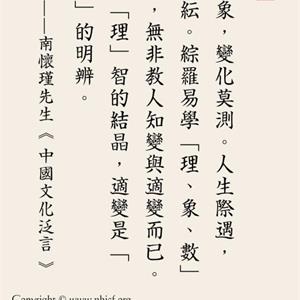 象，變化莫測。人生際遇，
紜。綜羅易學「理、象、數」
，無非教人知變與適變而已。
「理」智的結晶，適變是「
」的明辨。
——南懷瑾先生《中國文化泛言》
Copyright ©